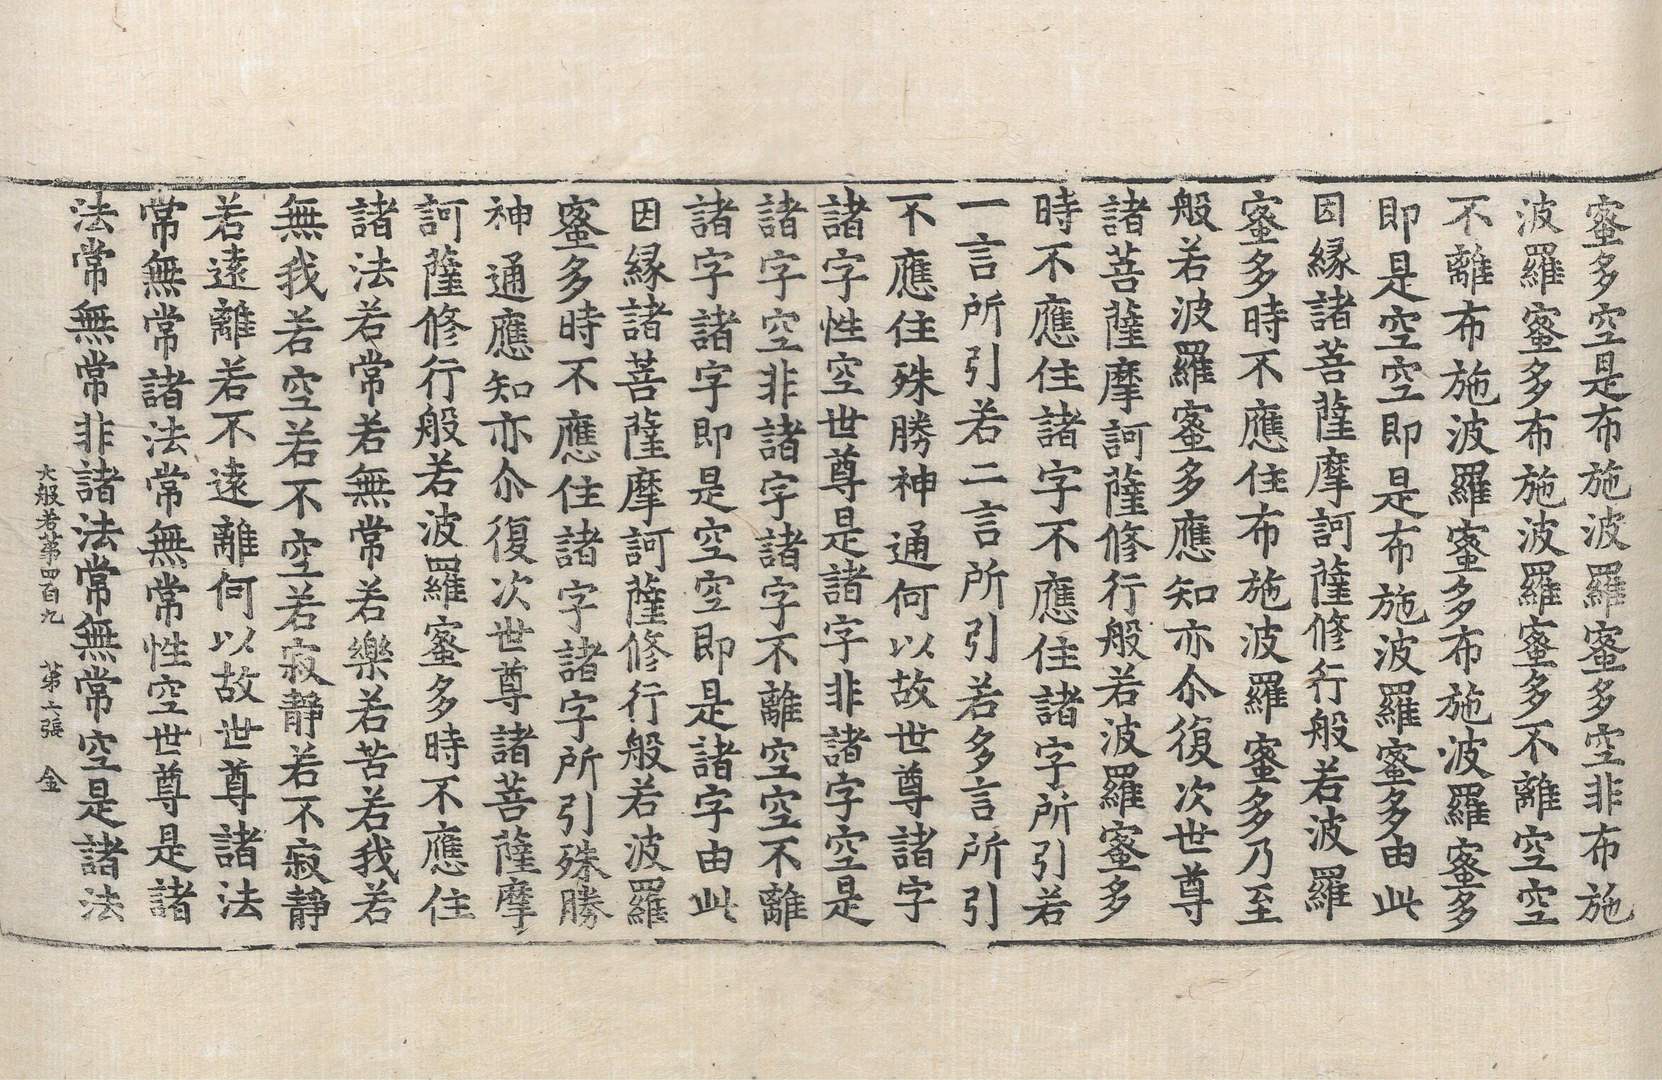 蜜多空是布施波羅蜜多空非布施
波羅蜜多布施波羅蜜多不離空空
不離布施波羅蜜多布施波羅蜜多
即是空空即是布施波羅蜜多由此
因縁諸菩薩摩訶薩修行般若波羅
蜜多時不應住布施波羅蜜多乃至
般若波羅蜜多應知亦尒復次世尊
諸菩薩摩訶薩修行般若波羅蜜多
時不應住諸字不應住諸字所引若
一言所引若二言所引若多言所引
不應住殊勝神通何以故世尊諸字
諸字性空世尊是諸字非諸字空是
諸字空非諸字諸字不離空空不離
諸字諸字即是空空即是諸字由此
因縁諸菩薩摩訶薩修行般若波羅
蜜多時不應住諸字諸字所引殊勝
神通應知亦尒復次世尊諸菩薩摩
訶薩修行般若波羅蜜多時不應住
諸法若常若無常若樂若苦若我若
無我若空若不空若寂靜若不寂靜
若遠離若不遠離何以故世尊諸法
常無常諸法常無常性空世尊是諸
法常無常非諸法常無常空是諸法
大般若第四百九 第六張 金